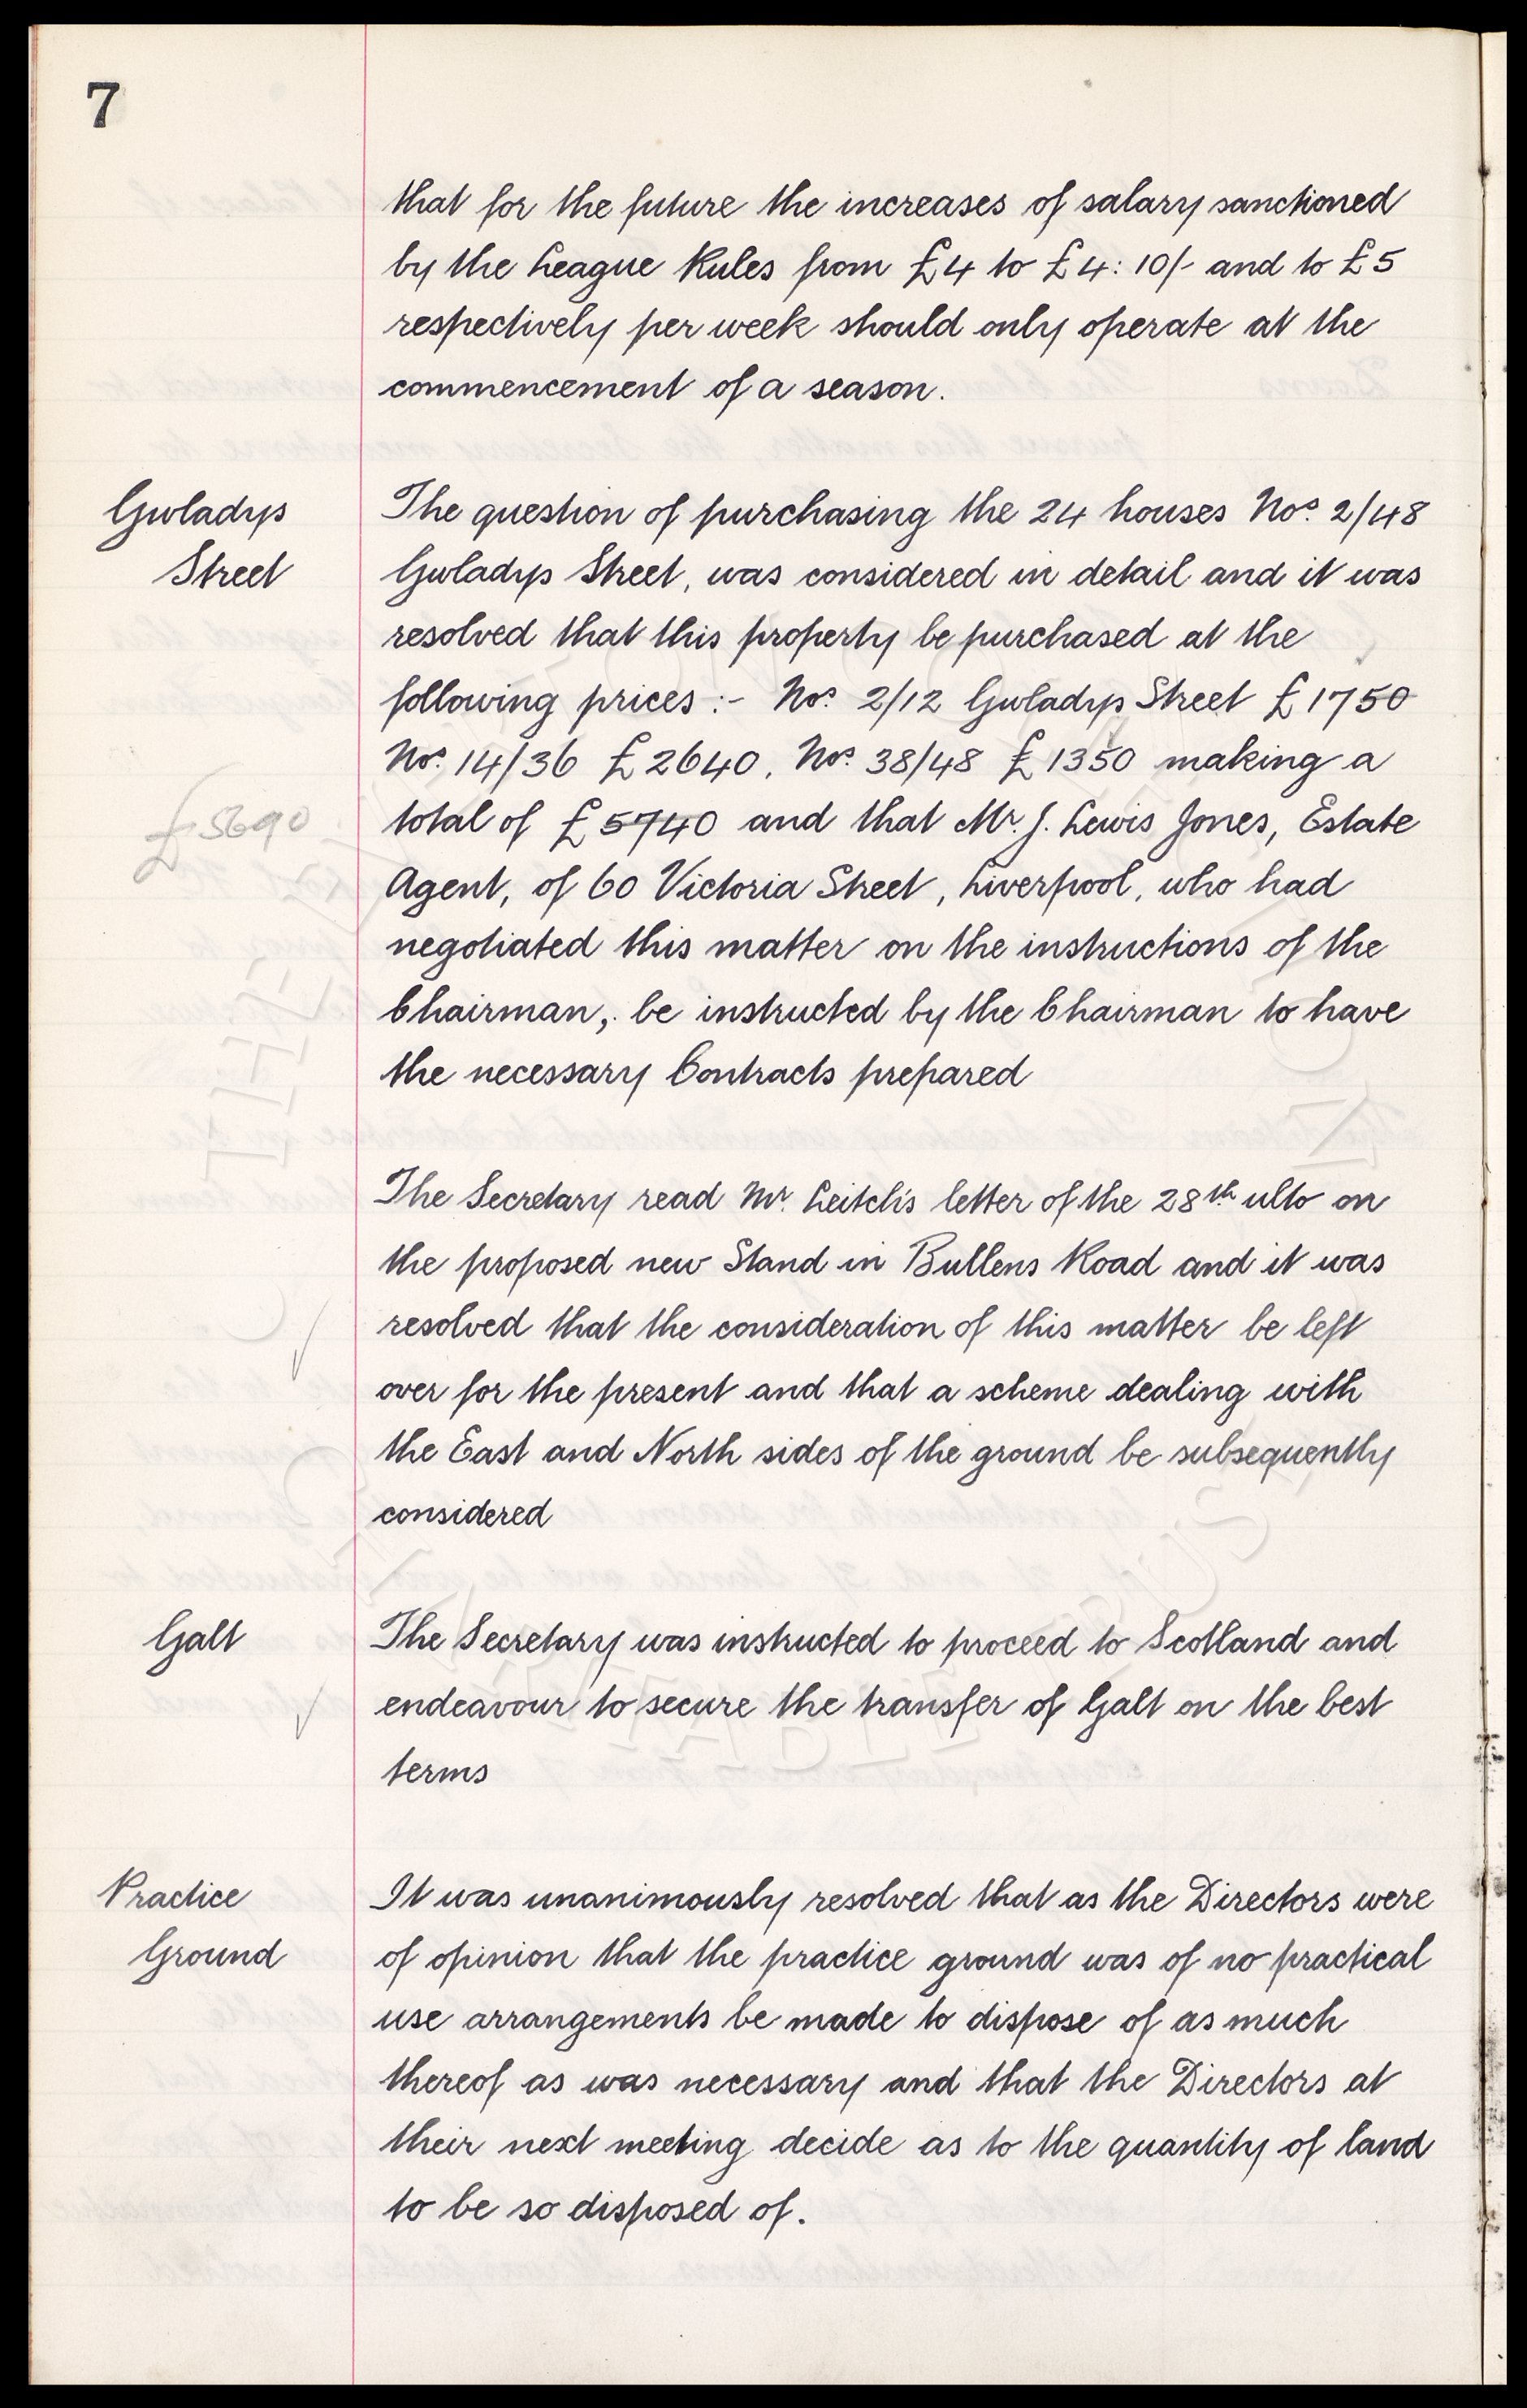 7
that for the future the increases of salary sanctioned
by the League Rules from £4 to £4:10/- and to £5
respectively per week should only operate at the
commencement of a season.
Gwladys
Street
The question of purchasing the 24 houses Nos. 2/48
Gwladys Street, was considered in detail and it was
resolved that this property be purchased at the
following prices :- Nos. 2/12 Gwladys Street £1750
Nos. 14/36 £2640, Nos. 38/48 £1350 making a
£5690
total of £5740 and that Mr. J. Lewis Jones, Estate
Agent, of 60 Victoria Street, Liverpool, who had
negotiated this matter on the instructions of the
Chairman, be instructed by the Chairman to have
the necessary Contracts prepared
The Secretary read Mr. Leitch's letter of the 28th ulto on
the proposed new Stand in Bullens Road and it was
resolved that the consideration of this matter be left
over for the present and that a scheme dealing with
the East and North sides of the ground be subsequently
considered
Galt
The Secretary was instructed to proceed to Scotland and
endeavour to secure the transfer of Galt on the best
terms
Practice
Ground
It was unanimously resolved that as the Directors were
of opinion that the practice ground was of no practical
use arrangements be made to dispose of as much
thereof as was necessary and that the Directors at
their next meeting decide as to the quantity of land
to be so disposed of.